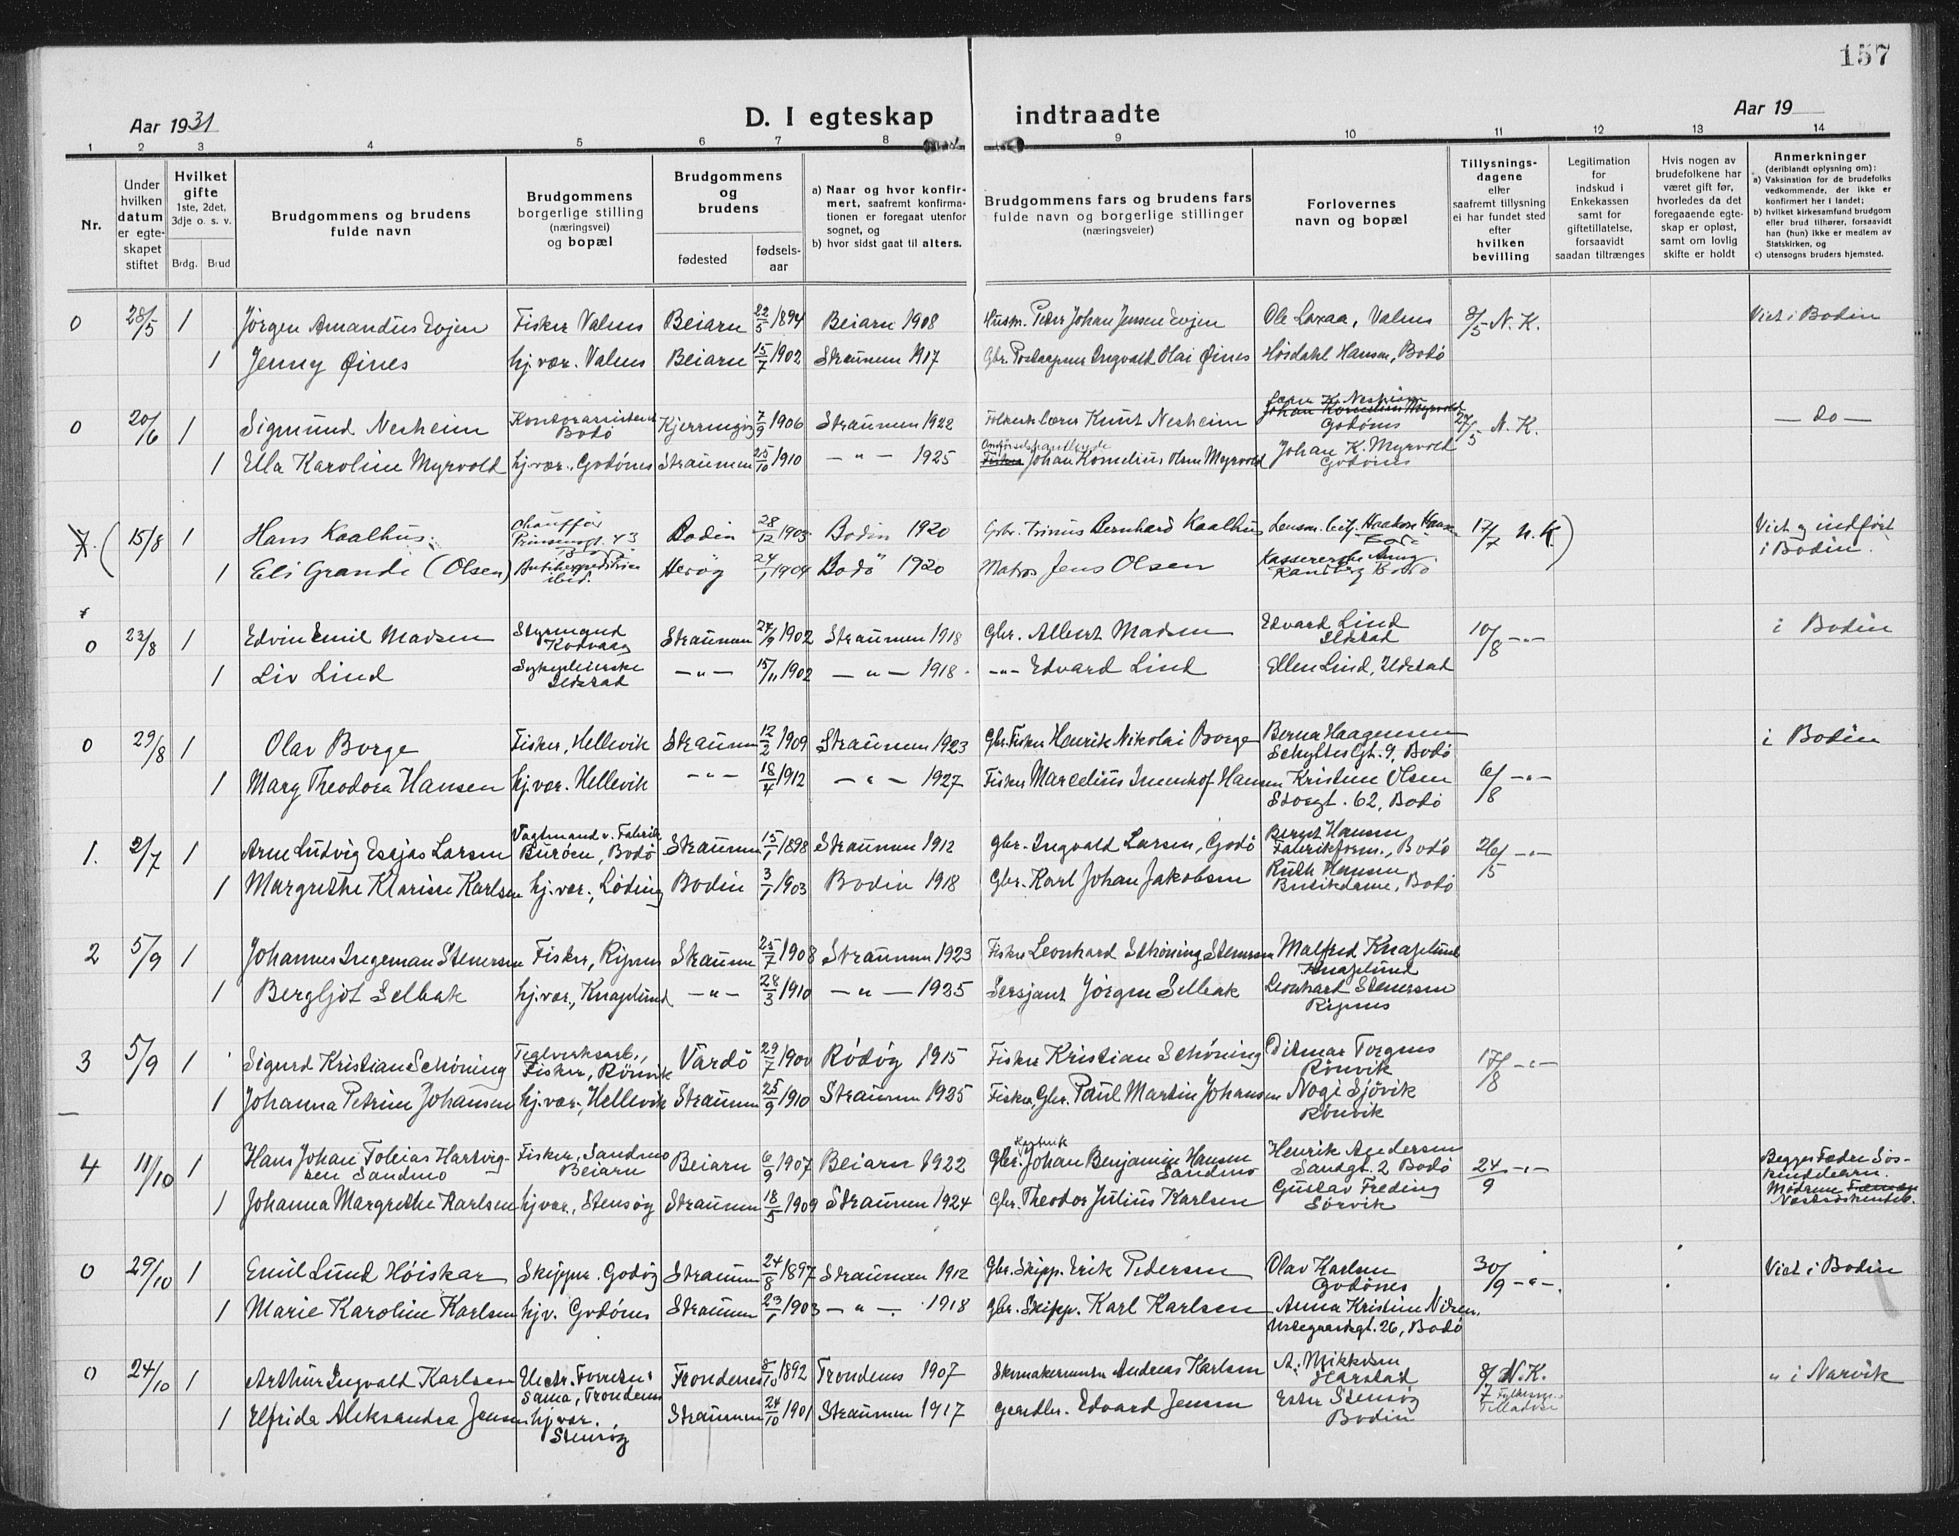 157
Aar 1931
D. I egteskap indtraadte
Aar 19
1 2 3 4 5 6 7 8 9 10 11 12 13 14
Nr.
Under hvilken datum er egteskapet stiftet
Hvilket gifte 1ste, 2det, 3dje o. s. v.
Brdg. Brud
Brudgommens og brudens fulde navn
Brudgommens borgerlige stilling (næringsvei) og bopæl
Brudgommens og brudens
fødested fødselsaar
a) Naar og hvor konfirmert, saafremt konfirmationen er foregaat utenfor sognet, og
b) hvor sidst gaat til alters.
Brudgommens fars og brudens fars fulde navn og borgerlige stillinger (næringsveier)
Forlovernes navn og bopæl
Tillysningsdagene eller saafremt tillysning ei har fundet sted efter hvilken bevilling
Legitimation for indskud i Enkekassen samt for giftetillatelse, forsaavidt saadan tiltrænges
Hvis nogen av brudefolkene har været gift før, hvorledes da det foregaaende egteskap er opløst, samt om lovlig skifte er holdt
Anmerkninger (deriblandt oplysning om):
a) Vaksination for de brudefolks vedkommende, der ikke er konfirmert her i landet;
b) hvilket kirkesamfund brudgom eller brud tilhører, forsaavidt han (hun) ikke er medlem av Statskirken, og
c) utensogns bruders hjemsted.
0 28/5 1 Jørgen Amandus Evjen Fisker Valnes Beiarn 22/5 1894 Beiarn 1908 Husm. Peder Johan Jensen Evjen Ole Laxaa, Valnes 8/5 N.K. Viet i Bodin
1 Jenny Øines hj.vær. Valnes Beiarn 15/7 1902 Straumen 1917 Gbr. Ingvald Olai Øines Høsdahl Hansen, Bodø
0 20/6 1 Sigmund Nesheim Kontorassistent Bodø Kjerringøy 7/9 1906 Straumen 1922 Lærer Knut Nesheim Lærer K. Nesheim Godønes 27/5 N.K. — do —
1 Ella Karoline Myrvold hj.vær. Godønes Straumen 25/10 1910 — " — 1925 Johan Kornelius Olsen Myrvold Johan K. Myrvold Godønes
7. ( 15/8 1 Hans Kaalhus. Chauffør Prinsensgt. 43 Bodø Bodin 28/12 1903 Bodin 1920 Gbr. Trinus Bernhard Kaalhus Lensm. betj. Haakon 17/7 N.K.) Viet og indført i Bodin.
1 Eli Grande (Olsen) ibid. Herøy 24/1 1904 Bodø 1920 Matros Jens Olsen Kassererske Randberg Bodø
0 23/8 1 Edvin Emil Madsen Styrmand Kodvaag Straumen 24/9 1902 Straumen 1918 Gbr. Albert Madsen Edvard Lind Ildstad 10/8 -"- i Bodin
1 Liv Lind Sykepleierske Ildstad — " — 15/11 1902 — " — 1918. -"- Edvard Lind Ellen Lind, Ildstad
0 29/8 1 Olav Borge Fisker, Hellevik Straumen 12/2 1909 Straumen 1923 Gbr. Fisker Henrik Nikolai Borge Berna Haagensen Schyttesgt. 9, Bodø i Bodin
1 Mary Theodora Hansen hj.vær. Hellevik — " — 18/4 1912 — " — 1927 Fisker Marcelius Imenhof Hansen Kristine Olsen Storgt. 62, Bodø 6/8 -"-
1. 2/7 1 Arne Ludvig Esajas Larsen Vagtmand v. Fabrik Burøen, Bodø Straumen 15/1 1898 Straumen 1912 Gbr. Ingvald Larsen, Godø Bernt Hansen Fabrikform., Bodø 26/5 -"-
1 Margrethe Klarisse Karlsen hj.vær., Løding Bodin 3/1 1903 Bodin 1918 Gbr. Karl Johan Jakobsen Ruth Hansen Butikdame, Bodø
2 5/9 1 Johannes Ingeman Stenersen Fisker, Ripnes Straumen 25/7 1908 Straumen 1923 Fisker Leonhard Schöning Stenersen Malfred Knaplund Knaplund
1 Bergljot Selbak hj.vær., Knaplund — " — 28/3 1910 — " — 1925 Sersjant Jörgen Selbak Leonhard Stenersen Ripnes
3 5/9 1 Sigurd Kristian Schöning Teglverksarb., Fisker, Rönvik Vardö 29/7 1900 Rödöy 1915 Fisker Kristian Schöning Ditmar Torgnes Rönvik 17/8 -"-
1 Johanna Petrine Johansen hj.vær., Hellevik Straumen 25/9 1910 Straumen 1925 Fisker, Gbr. Paul Martin Johansen Nagi Sjövik Rönvik
4 11/10 1 Hans Johan Tobias Hartvigsen Sandmo Fisker, Sandmo Beiarn Beiarn 6/9 1907 Beiarn 1922 Gbr. Hartvik Johan Benjamin Hansen Sandmo Henrik Andersen Sandgt. 2 Bodø 24/9 -"- Begges Fædre Søskendebarn. Mødrene Næstsøskendeb.
1 Johanna Margrethe Karlsen hj.vær., Stensøy Straumen 18/5 1909 Straumen 1924 Gbr. Theodor Julius Karlsen Gustav Freding Sörvik
0 29/10 1 Emil Lund Høiskar Skipper. Godøy Straumen 24/8 1897 Straumen 1912 Gbr. Skipp. Erik Pedersen Olav Karlsen Godønes 30/9 -"-. Viet i Bodin
1 Marie Karoline Karlsen hjv. Godønes Straumen 23/1 1903 — " — 1918 Gbr. Skipp. Karl Karlsen Anna Kristine Nilsen. 26, Bodø
0 24/10 1 Arthur Ingvald Karlsen Sama, Trondenes Trondenes 8/10 1892 Trondenes 1907 Skomakermester Andreas Karlsen A. Mikkelsen Harstad 8/7 N.K. Tilladelse " i Narvik
1 Elfrida Aleksandra Jensen hj.vær. Stensøy Straumen 24/10 1901 Straumen 1917 Gaardbr. Edvard Jensen Ester Stensøy Bodin